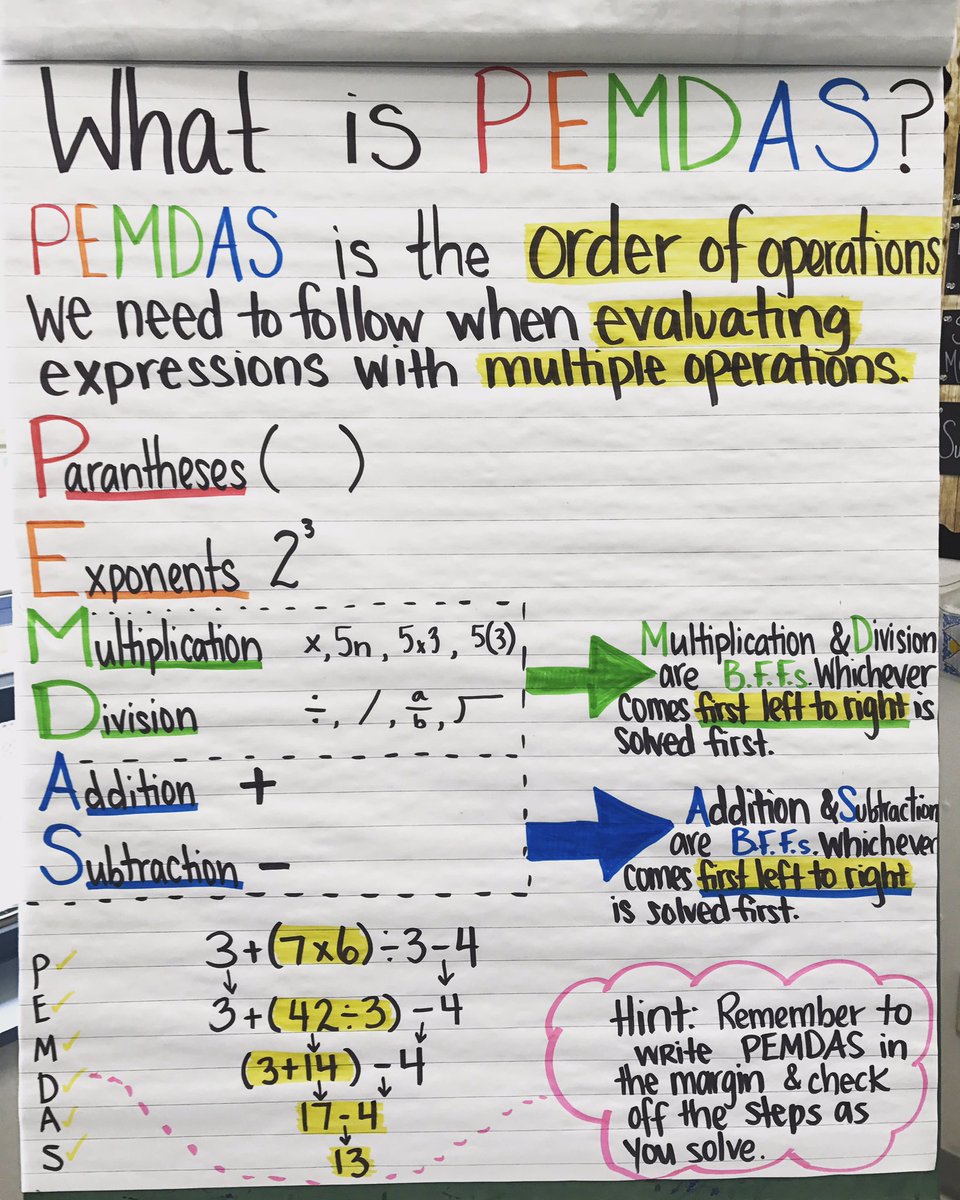 What is PEMDAS?
PEMDAS is the order of operations
we need to follow when evaluating
expressions with multiple operations.
Parantheses ( )
Exponents 2³
Multiplication x, 5n, 5x3, 5(3)
Division ÷, /, a/b, ⟌
Multiplication & Division
are B.F.F.s. Whichever
comes first left to right is
solved first.
Addition +
Subtraction -
Addition & Subtraction
are B.F.F.s. Whichever
comes first left to right
is solved first.
P✓
E✓
M✓
D✓
A✓
S✓
3+(7x6)÷3-4
3+(42÷3)-4
(3+14)-4
17-4
13
Hint: Remember to
write PEMDAS in
the margin & check
off the steps as
you solve.